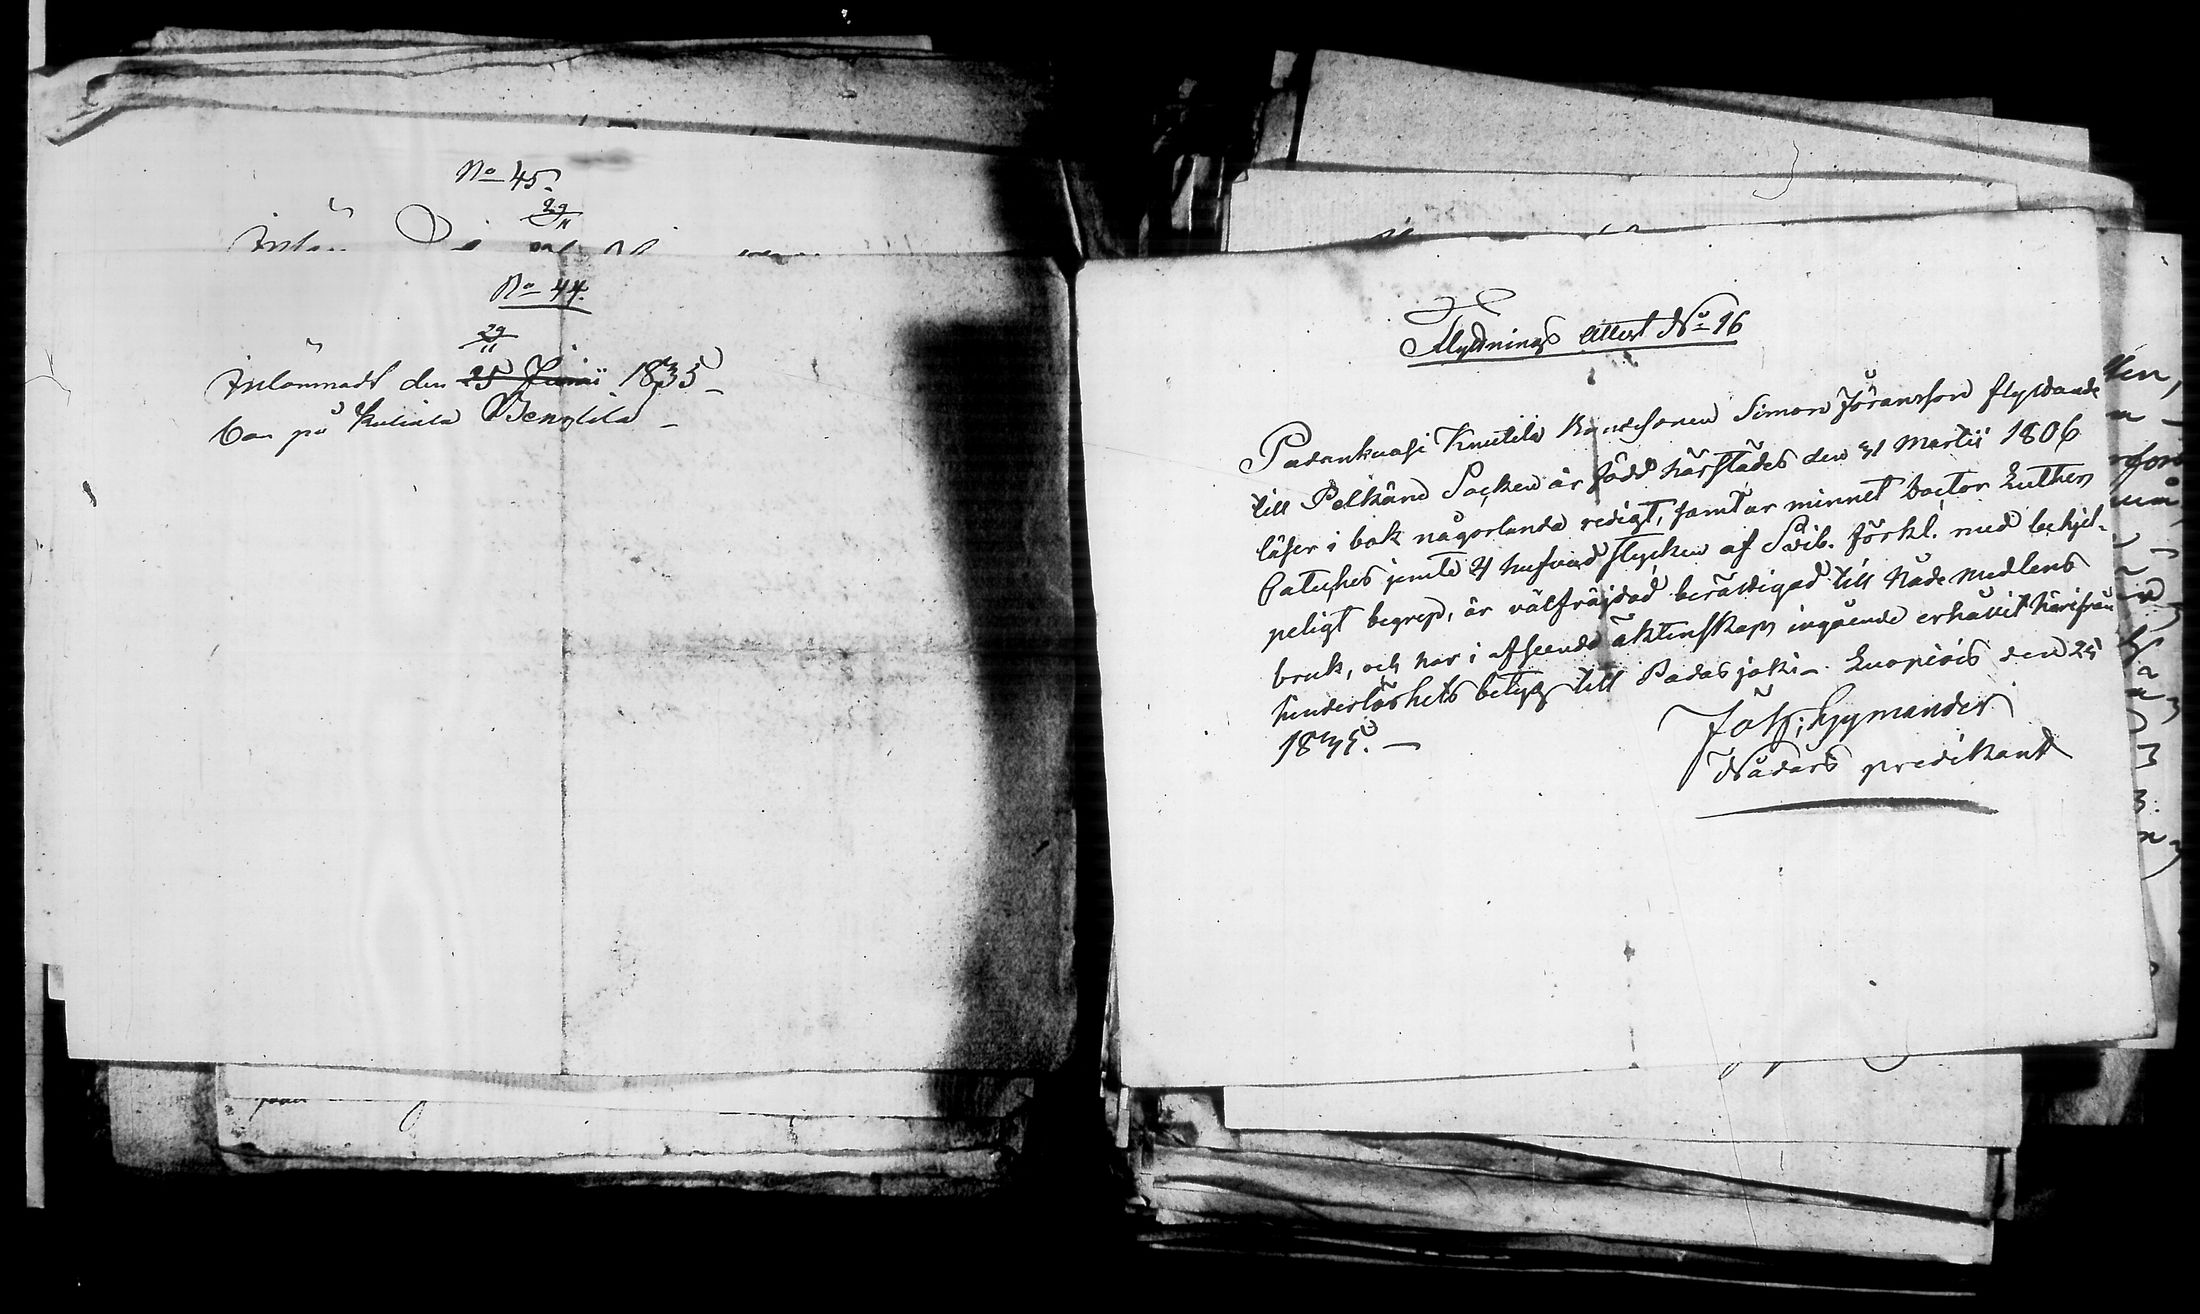 No 45.
29/11
No 44.
29/11
Inlämnadt den 25 Junii 1835 –
bor på Bengtila –
Flyttnings Attest No 16
Padankoski Knutila Bondesonen Simon Jöransson flyttande
till Pelkäne Socken är född härstädes den 31 Martii 1806
läser i bok någorlunda redigt, samt ur minnet Doctor Luthers
Cateches jemte 4 hufvud stycken af Svib. förkl. med behjel-
peligt begrep, är välfräjdad berättigad till Nåde medlens
bruk, och har i afseende å äktenskaps ingående erhållit härifrån
hinderlöshets betyg till Padasjoki – Luopiois den 25
1835. –
Joh: Hymander
Nådårs predikant